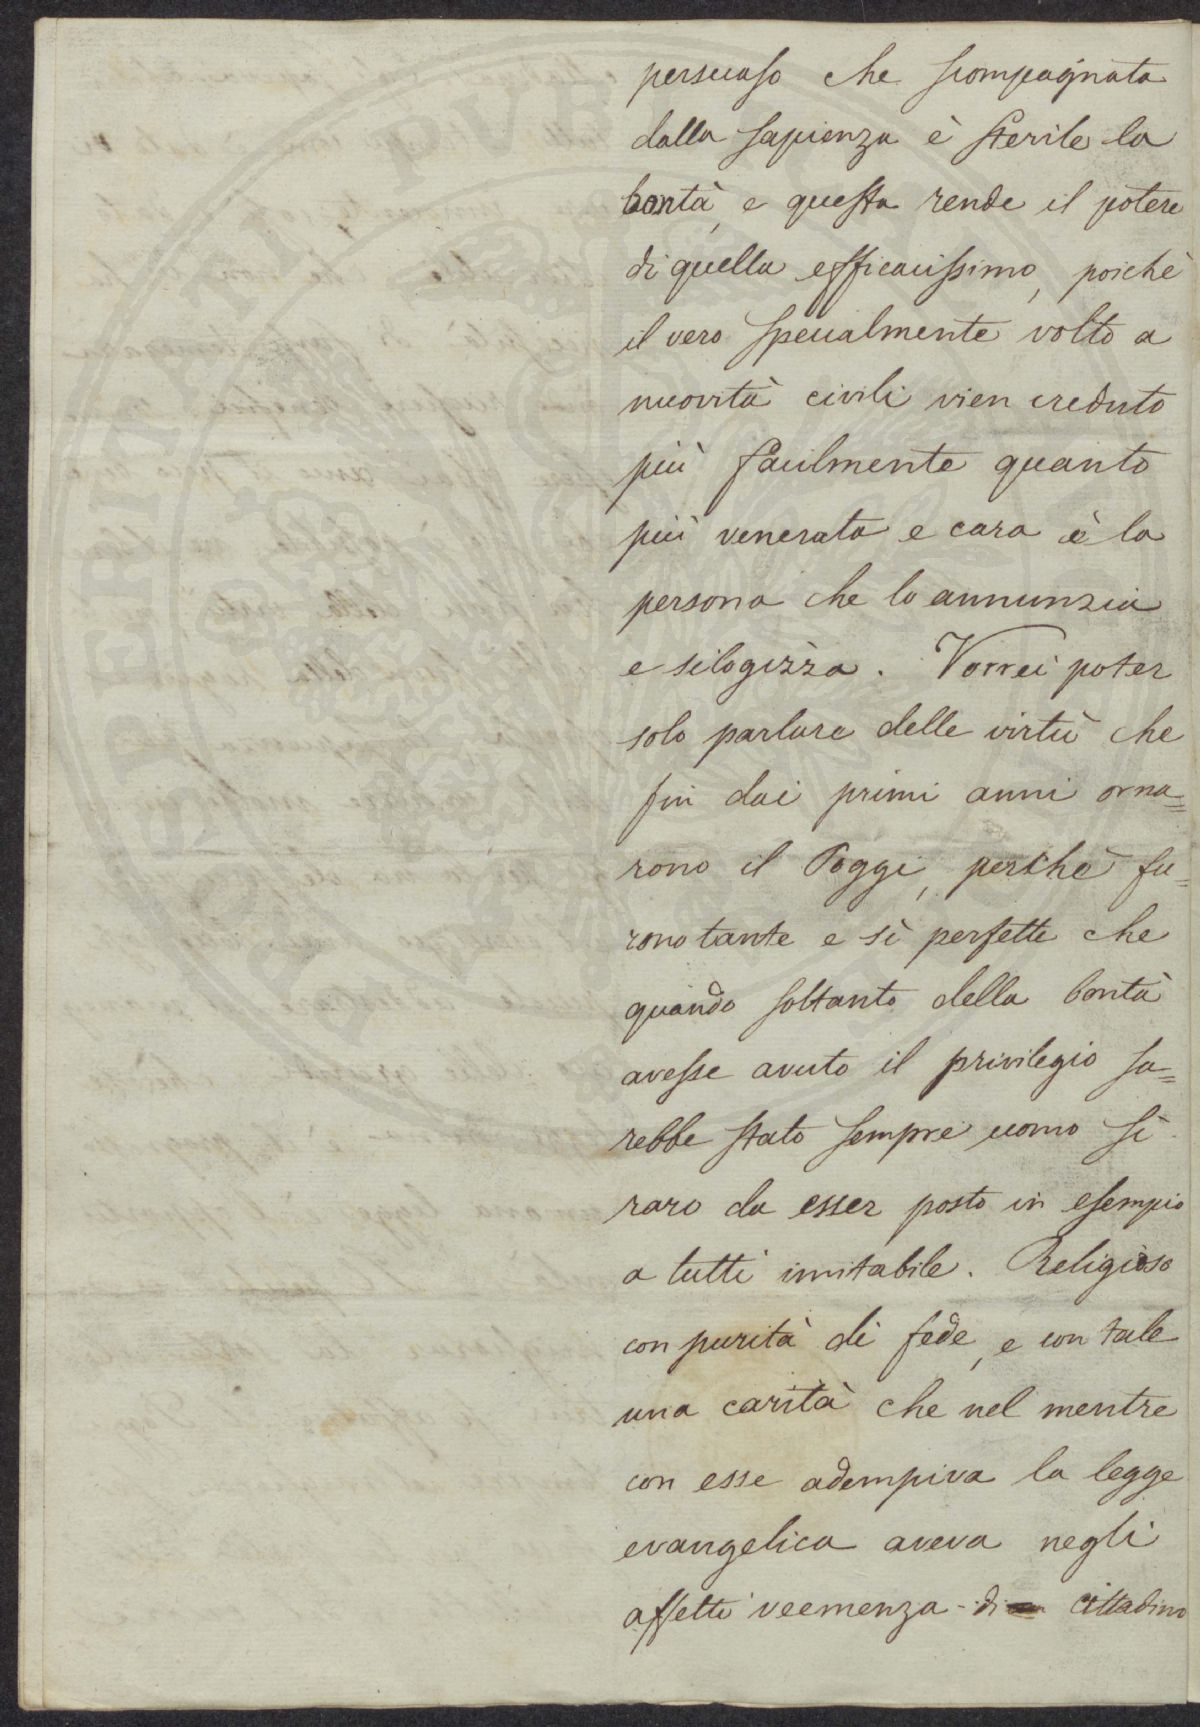 persuaso che scompagnata
dalla sapienza è sterile la
bontà, e questa rende il potere
di quella efficacissimo, poichè
il vero specialmente volto a
nuovità civili vien creduto
più facilmente quanto
più venerata e cara è la
persona che lo annunzia
e silogizza. Vorrei poter
solo parlare delle virtù che
fin dai primi anni orna=
rono il Poggi, perchè fu=
rono tante e sì perfette che
quando soltanto della bontà
avesse avuto il privilegio sa=
rebbe stato sempre uomo sì
raro da esser posto in esempio
a tutti imitabile. Religioso
con purità di fede, e con tale
una carità che nel mentre
con esse adempiva la legge
evangelica aveva negli
affetti veemenza di cittadino